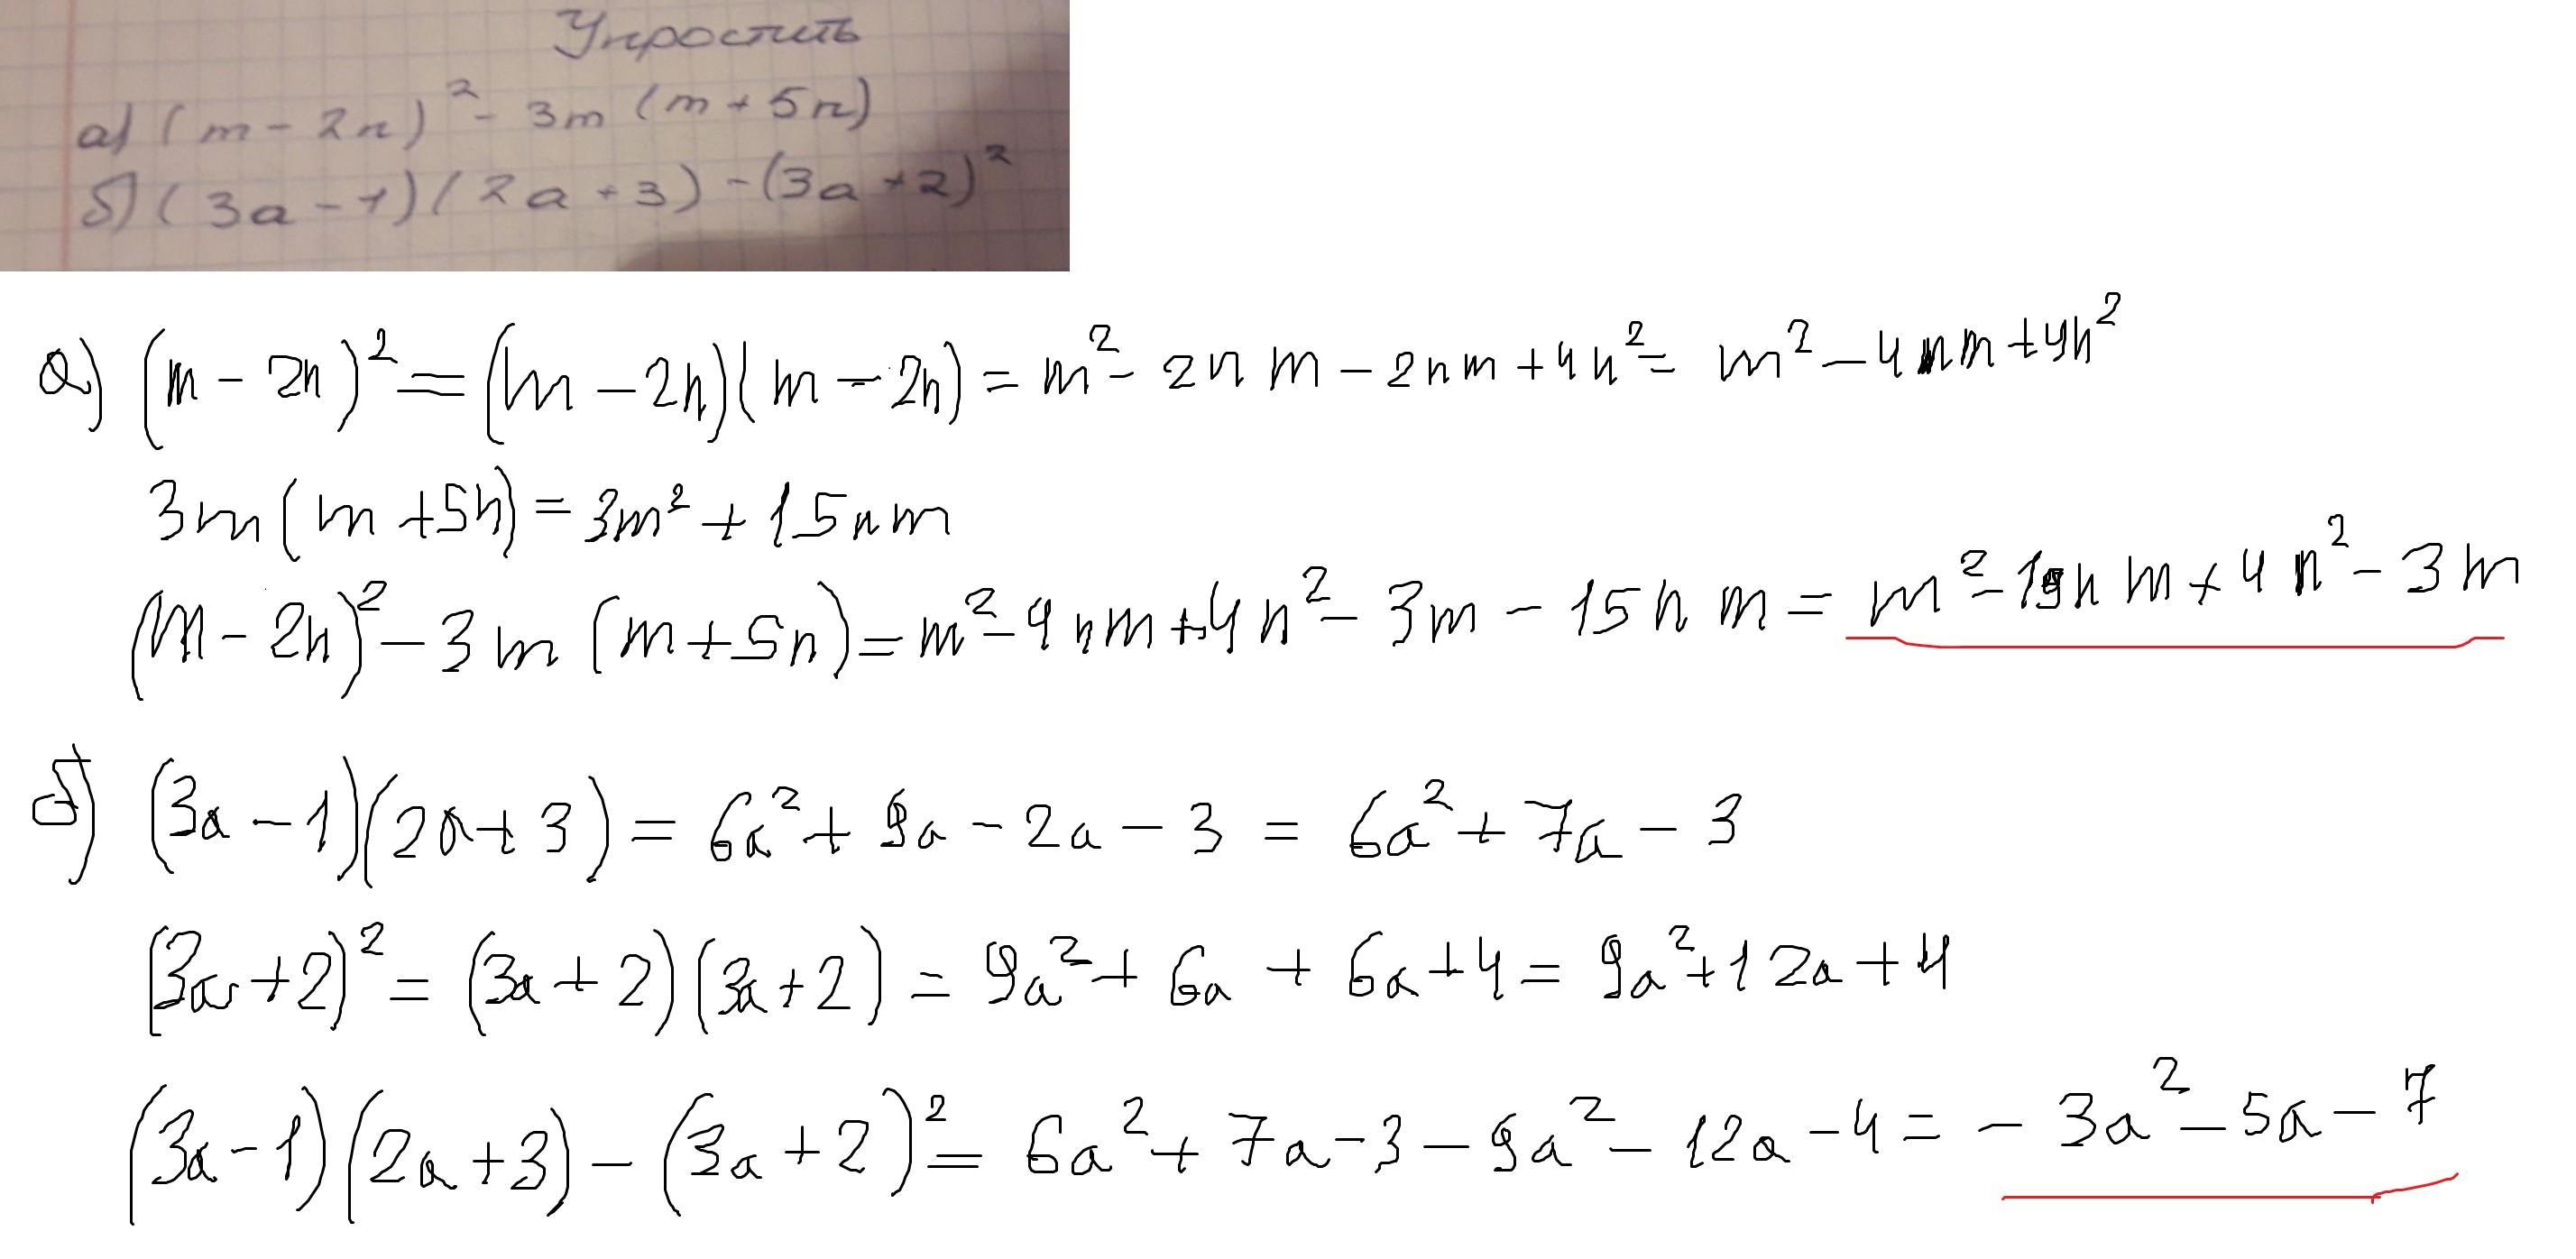 Упростить
а) (m - 2n)² - 3m (m + 5n)
б) (3a - 1)(2a + 3) - (3a + 2)²
а) (m - 2n)² = (m - 2n)(m - 2n) = m² - 2nm - 2nm + 4n² = m² - 4nm + 4n²
3m(m + 5n) = 3m² + 15nm
(m - 2n)² - 3m (m + 5n) = m² - 4nm + 4n² - 3m - 15nm = m² - 19nm + 4n² - 3m
б) (3a - 1)(2a + 3) = 6a² + 9a - 2a - 3 = 6a² + 7a - 3
(3a + 2)² = (3a + 2)(3a + 2) = 9a² + 6a + 6a + 4 = 9a² + 12a + 4
(3a - 1)(2a + 3) - (3a + 2)² = 6a² + 7a - 3 - 9a² - 12a - 4 = - 3a² - 5a - 7